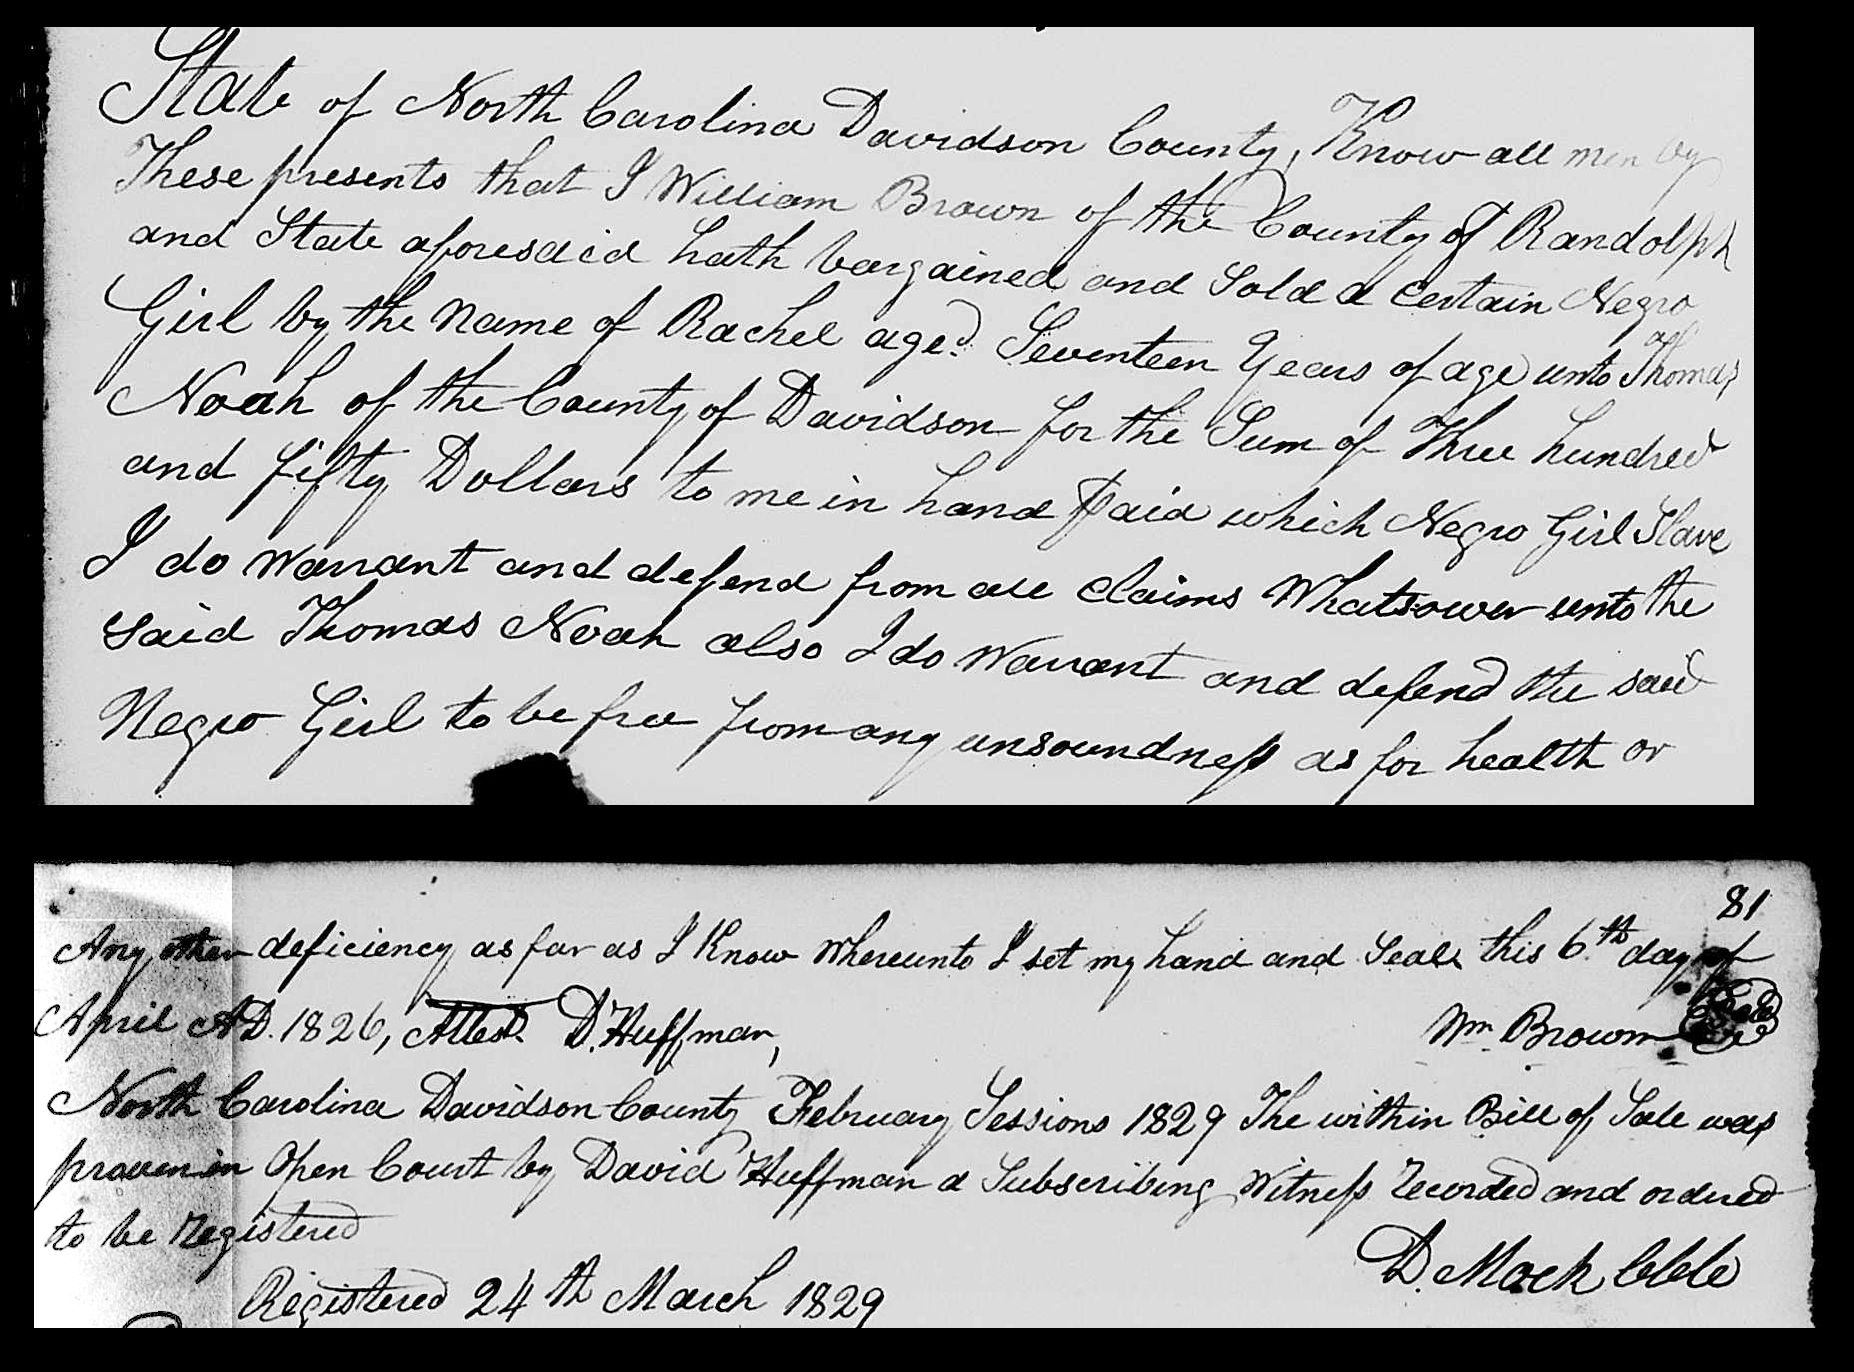 State of North Carolina Davidson County, Know all men by
These presents that I William Brown of the County of Randolph
and State aforesaid hath bargained and Sold a certain Negro
Girl by the Name of Rachel aged Seventeen Years of age unto Thomas
Noah of the County of Davidson for the Sum of Three hundred
and fifty Dollars to me in hand Paid which Negro Girl Slave
I do warrant and defend from all Claims Whatsower unto the
Said Thomas Noah also I do Warrant and defend the said
Negro Girl to be free from any unsoundness as for health or
81
Any other deficiency as far as I Know Whereunto I set my hand and Seal this 6th day of
April AD. 1826, Attest D. Huffman, Wm Brown Seal
North Carolina Davidson County February Sessions 1829 The within Bill of Sale was
proven in Open Court by David Huffman a Subscribing Witness Recorded and ordered
to be Registered
D. Mock Clk
Registered 24th March 1829